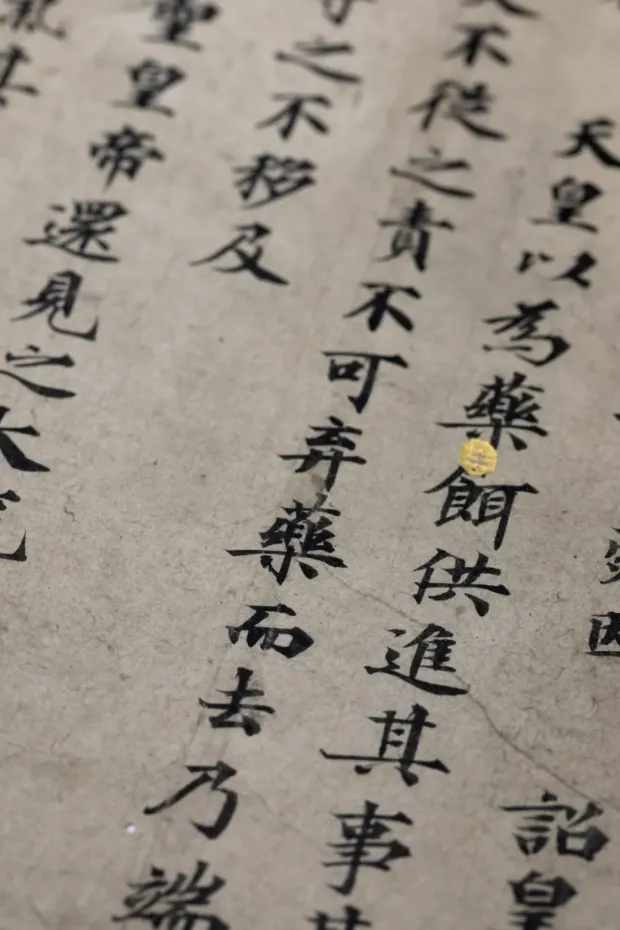 因 詔皇
天皇以為藥餌供進其事其
不從之責不可弃藥而去乃端
之不移及
聖皇帝還見之
其